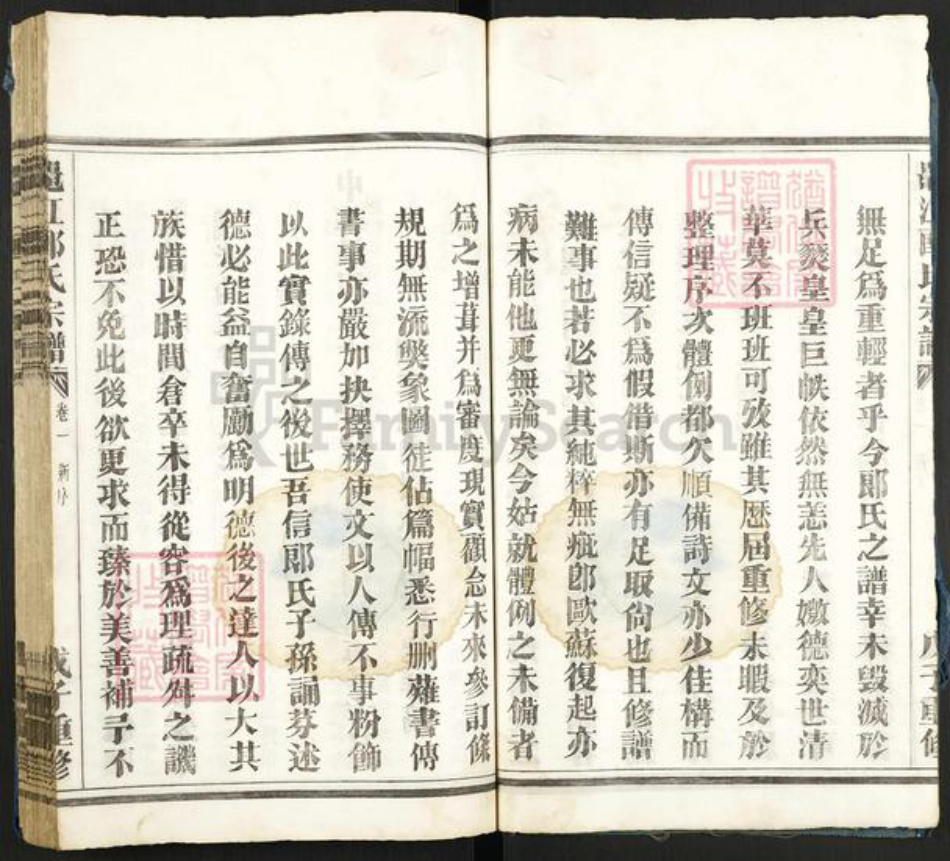 無足爲重輕者乎今郎氏之譜幸未毁滅於
兵燹皇皇巨帙依然無恙先人嫩德奕世清
華莫不班班可攷雖其歷屆重修未暇及於
整理序次體例都欠順備詩文亦少佳構而
傳信疑不爲假借斯亦有足取尙也且修譜
難事也若必求其純粹無疵卽歐蘇復起亦
病未能他更無論矣今姑就體例之未備者
爲之增葺并爲審度現實顧念未來參訂條
規期無流獘象圖徒佔篇幅悉行删薙書傳
書事亦嚴加抉擇務使文以人傳不事粉飾
以此實錄傳之後世吾信郎氏子孫誦芬述
德必能益自奮勵爲明德後之達人以大其
族惜以時間倉卒未得從容爲理疏舛之譏
正恐不免此後欲更求而臻於美善補予不
郎氏宗譜
卷一
新序
戊子重修
FamilySearch